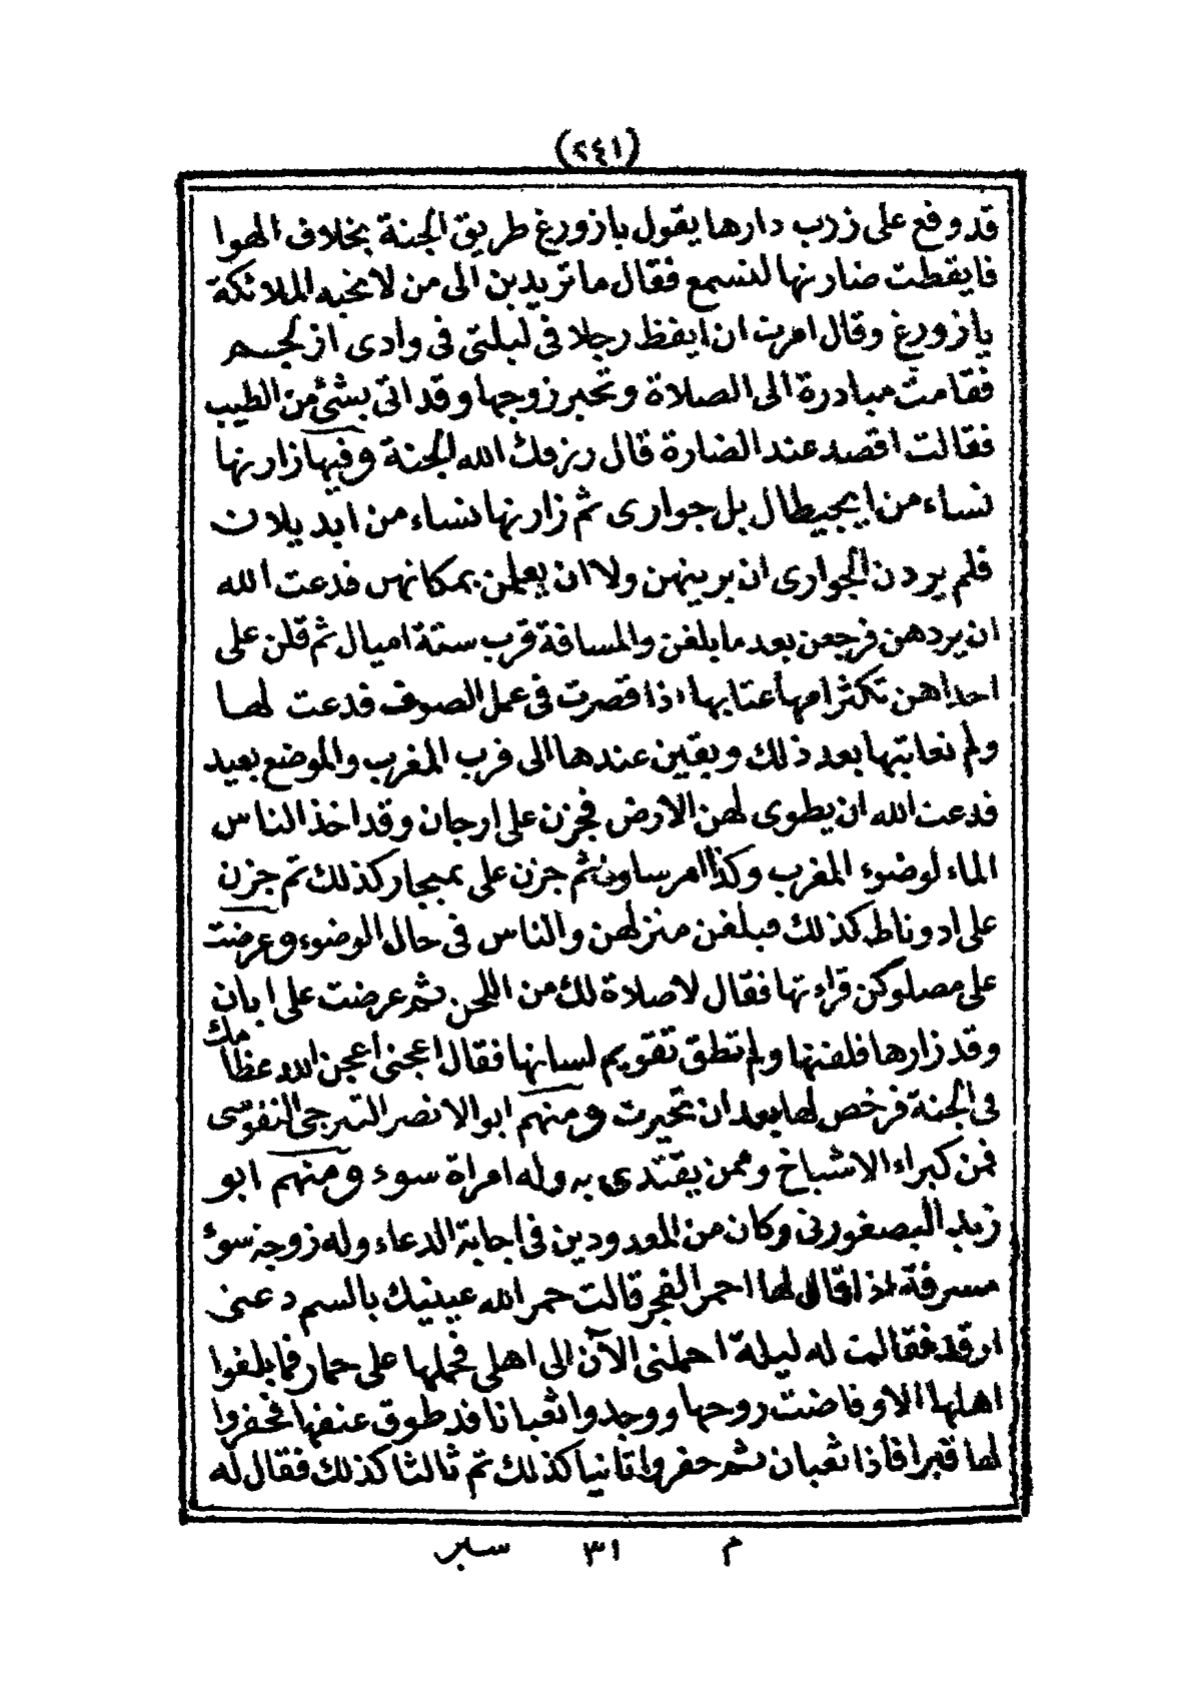 (٢٤١)
قد وقع على زرب دارها يقول يازورغ طريق الجنة بخلاف الهوا
فايقظت ضارتها لتسمع فقال ما تريدين الى من لا تحبه الملائكة
يازورغ وقال امرت ان ايقظ رجلا فى ليلتى فى وادى ازلجم
فقامت مبادرة الى الصلاة وتخبر زوجها وقد اتى بشئ من الطيب
فقالت اقصد عند الضارة قال رزقك الله الجنة وفيها زارتها
نساء من ايجيطال بل جوارى ثم زارتها نساء من ابديلان
فلم يردن الجوارى ان يرينهن ولا ان يعلمن بمكانهن فدعت الله
ان يردهن فرجعن بعد ما بلغن والمسافة قرب ستة اميال ثم قلن على
احداهن تكثر امها عتابها اذا قصرت فى عمل الصوف فدعت لها
ولم تعاتبها بعد ذلك وبقين عندها الى قرب المغرب والموضع بعيد
فدعت الله ان يطوى لهن الارض فجزن على ارجان وقد اخذ الناس
الماء لوضوء المغرب وكذا امرساون ثم جزن على تمجار كذلك ثم جزن
على ادوناط كذلك فبلغن منزلهن والناس فى حال الوضوء وعرضت
على مصلوكن قراءتها فقال لا صلاة لك من اللحن ثم عرضت على ابان
وقد زارها فلقنها ولم تطق تقويم لسانها فقال اعجنى اعجن الله عظامك
فى الجنة فرخص لها بعد ان تحيرت ومنهم ابو الانصر التبرجى النفوسى
فمن كبراء الاشياخ وممن يقتدى به وله امراة سوء ومنهم ابو
زيد البصغورنى وكان من المعدودين فى اجابة الدعاء وله زوجة سوء
مسرفة اذا قال لها احمر الفجر قالت حمر الله عينيك بالسم دعنى
ارقد فقالت له ليلة احملنى الآن الى اهلى فحملها على حمار فما بلغوا
اهلها الا وفاضت روحها ووجدوا ثعبانا قد طوق عنقها فحفروا
لها قبرا فاذا ثعبان ثم حفروا ثانيا كذلك ثم ثالثا كذلك فقال له
م ٣١ سير